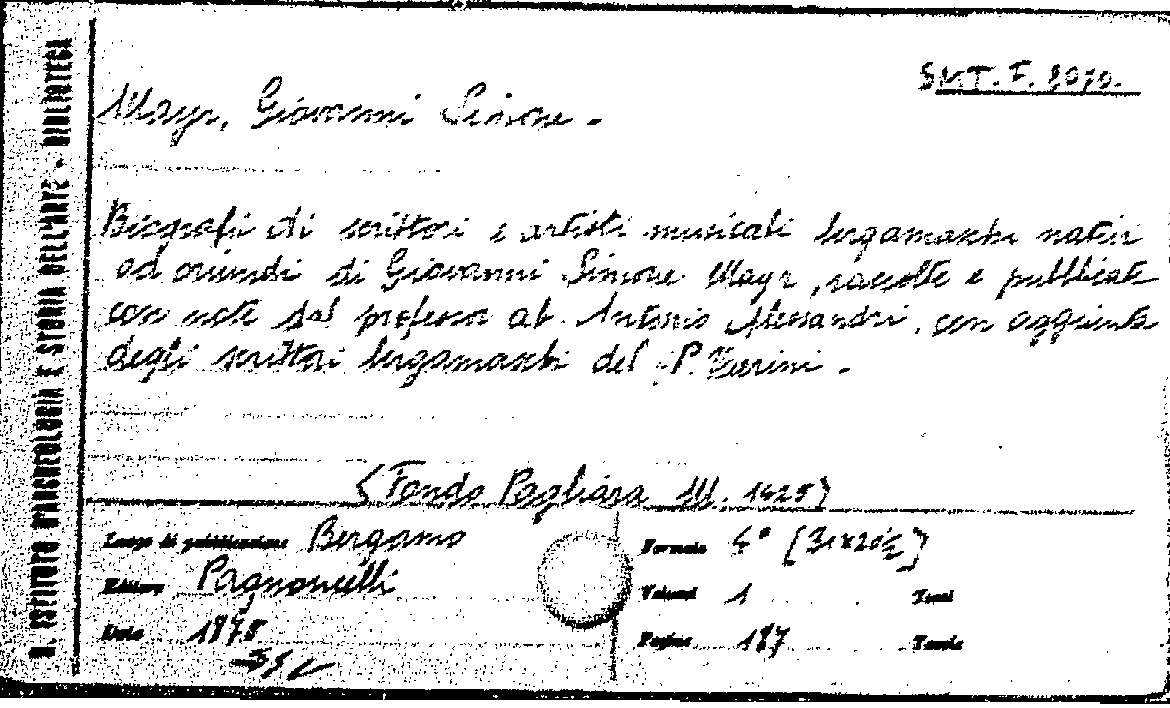 SMT. F. 8070.
Mayr, Giovanni Simone. -
Biografi di scrittori e artisti musicali bergamaschi nativi
od oriundi di Giovanni Simone Mayr, raccolte e pubblicate
con note dal professor ab. Antonio Alessandri, con aggiunta
degli scrittori bergamaschi del P. Vaerini. -
{Fondo Pagliara M. 1428}
Luogo di pubblicazione Bergamo
Editore Pagnoncelli
Data 1875
Formato 4°
Volumi 1 Tomi
Pagine 187 Tavole
R. ISTITUTO D'ARCHEOLOGIA E STORIA DELL'ARTE - BIBLIOTECA